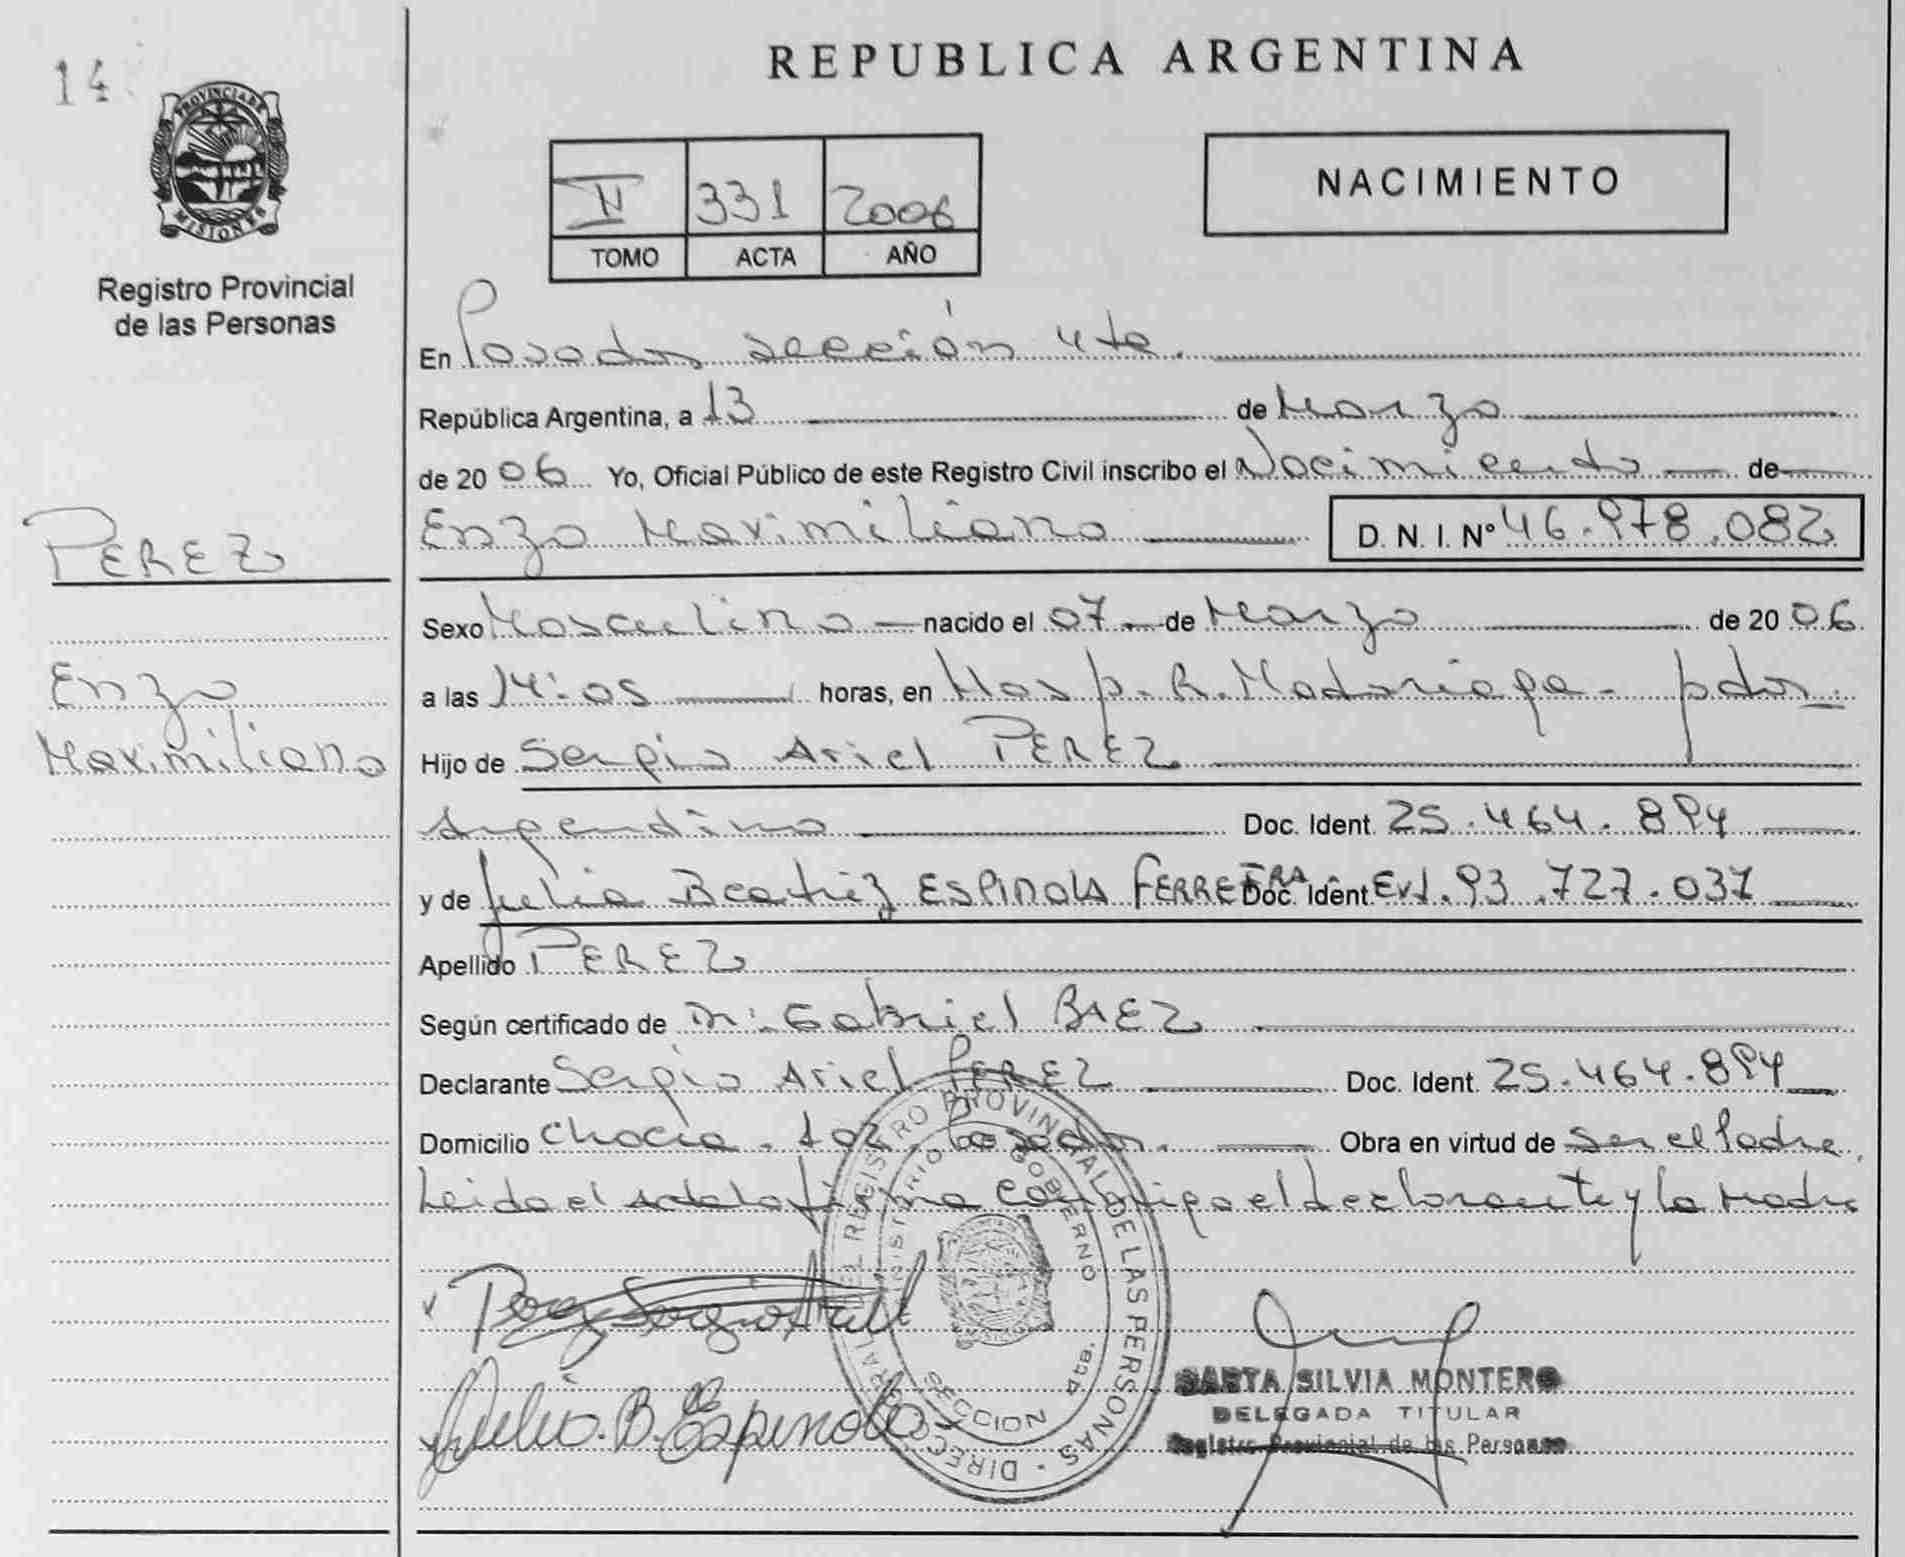 14
PROVINCIA DE
MISIONES
Registro Provincial
de las Personas
REPUBLICA ARGENTINA
II 331 2006
TOMO ACTA AÑO
NACIMIENTO
En Posadas sección 4ta.
República Argentina, a 13 de Marzo
de 2006 Yo, Oficial Público de este Registro Civil inscribo el Nacimiento de
Enzo Maximiliano D. N. I. Nº 46.978.082
PEREZ
Sexo Masculino nacido el 07 de Marzo de 2006
Enzo
Maximiliano
a las 14:05 horas, en Hosp. R. Madariaga - pdas
Hijo de Sergio Ariel PEREZ
Argentino Doc. Ident. 25.464.894
y de Julia Beatriz ESPINOLA FERREIRA Doc. Ident. Ext. 93.727.037
Apellido PEREZ
Según certificado de Dr. Gabriel BAEZ
Declarante Sergio Ariel PEREZ Doc. Ident. 25.464.894
Domicilio Chacra 102 Posadas. Obra en virtud de ser el Padre.
Leida el Acta la firma conmigo el declarante y la Madre
Perez Sergio Ariel
Julia. B. Espinola
DIRECC. GRAL. DEL REGISTRO PROVINCIAL DE LAS PERSONAS
MINISTERIO GOBIERNO
SECCION 4ta.
SARTA SILVIA MONTERO
DELEGADA TITULAR
Registro Provincial de las Personas